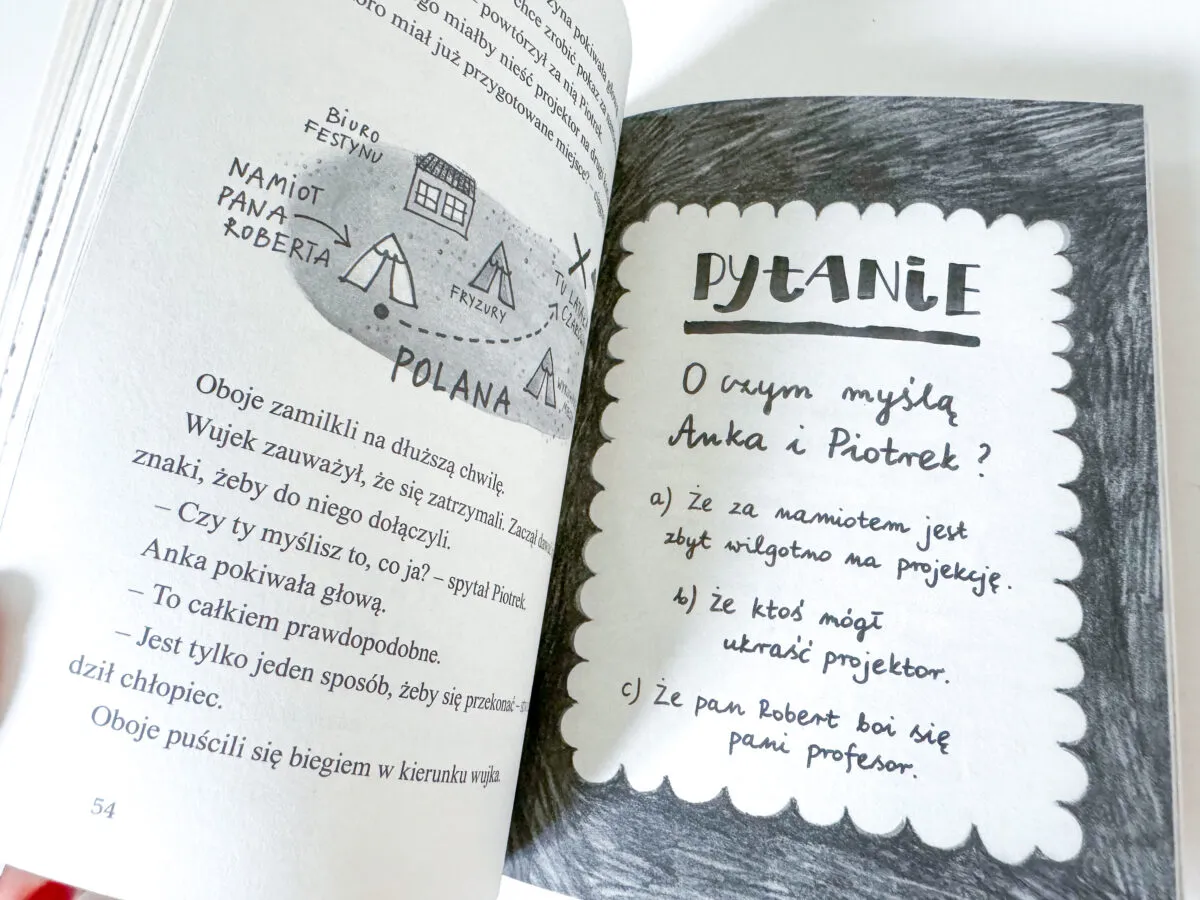 zyna pokiwała głową
chce zrobić pokaz za
– powtórzył za nią Piotrek
go miałby nieść projektor na drugi
oro miał już przygotowane miejsce? –
BIURO
FESTYNU
NAMIOT
PANA
ROBERTA
FRYZURY
TU
POLANA
Oboje zamilkli na dłuższą chwilę.
Wujek zauważył, że się zatrzymali. Zaczął
znaki, żeby do niego dołączyli.
– Czy ty myślisz to, co ja? – spytał Piotrek.
Anka pokiwała głową.
– To całkiem prawdopodobne.
– Jest tylko jeden sposób, żeby się przekonać –
dził chłopiec.
Oboje puścili się biegiem w kierunku wujka.
54
PYTANIE
O czym myślą
Anka i Piotrek?
a) Że za namiotem jest
zbyt wilgotno na projekcję.
b) Że ktoś mógł
ukraść projektor.
c) Że pan Robert boi się
pani profesor.